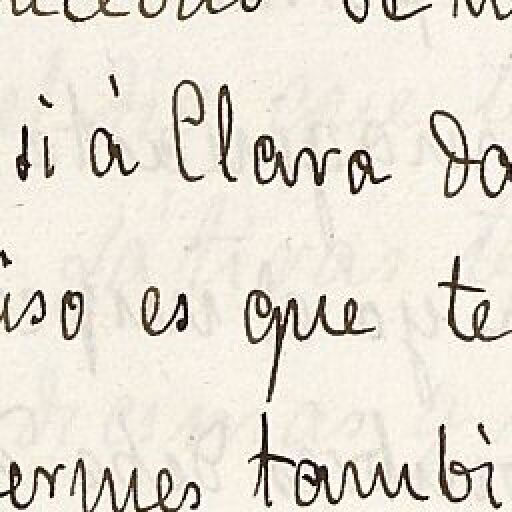 si à Clara da
iso es que te
ermes tambi